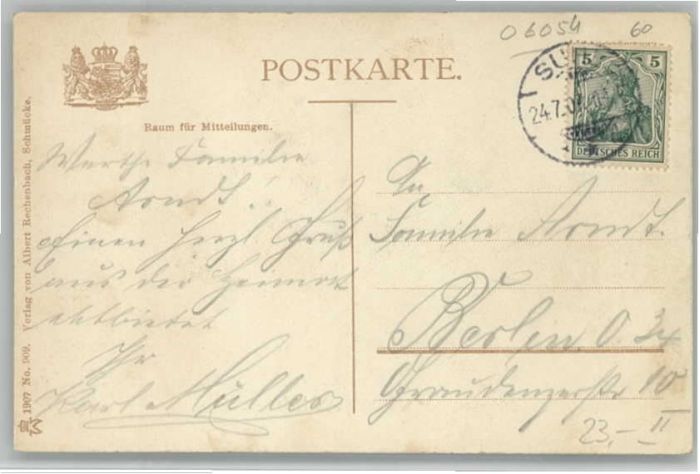 06054 60
POSTKARTE.
5 5
SU
24.7.0
DEUTSCHES REICH
Raum für Mitteilungen.
Werthe Familie
Arndt!
Einen herzl. Gruß
aus der Heimat
entbietet
Ihr
Karl Müller
An
Familie Arndt.
Berlin O 34
Graudenzerstr 10
II
23,-
1907 No. 909. Verlag von Albert Rechenbach, Schmücke.